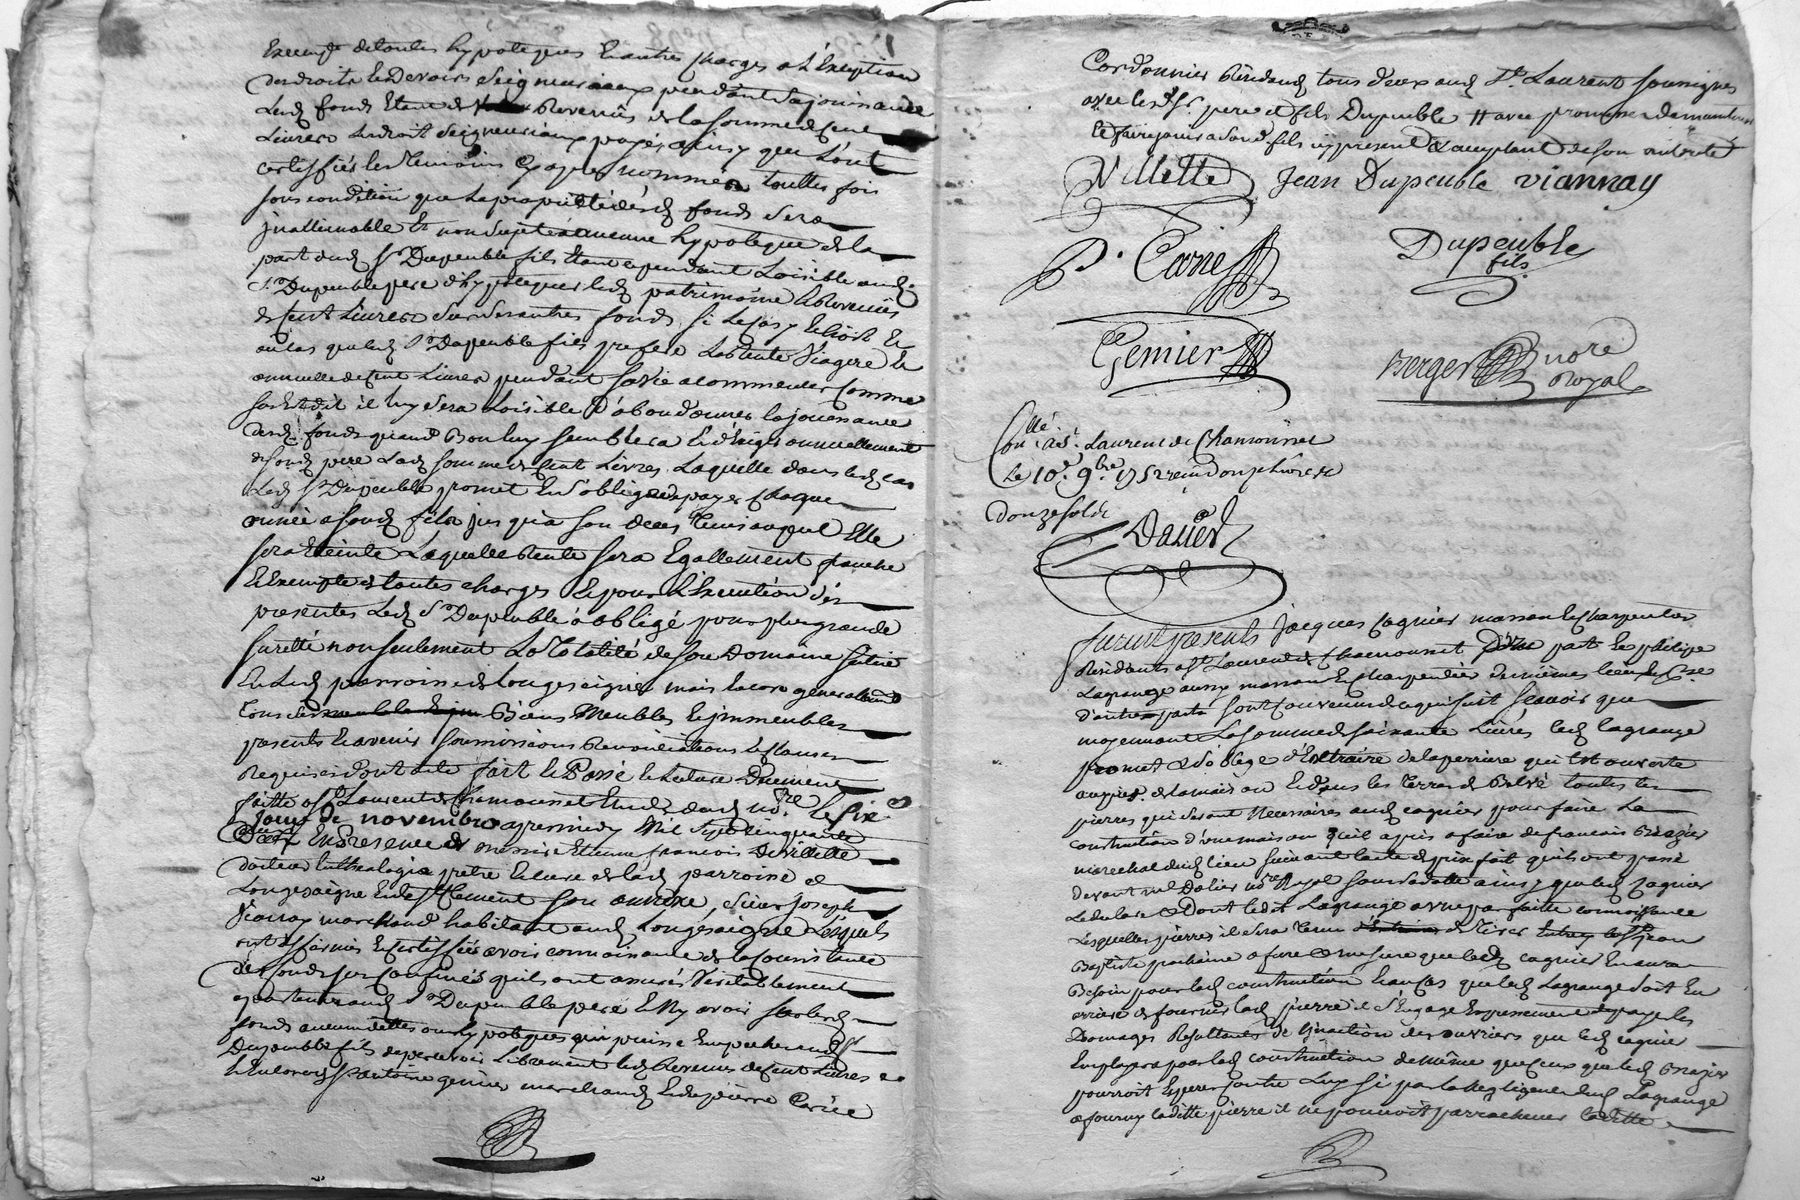 Exempt de toutes hypoteques et autres charges a l'Exeption
des droits et devoirs Seigneuriaux pendant sa jouissance
Led. fonds Etant de Revenus de la somme de Cent
Livres Le droit Seigneuriaux payés ainsy que L'ont
certiffiés les temoins cy apres nommés touttes fois
sous condition que La proprieté desd. fonds sera
jnallienable Et non sujete a aucunne hypoteque de la
part dud. Sr. Dupeuble fils Etant cependant Loisible aud.
Sr. Dupeuble pere d'hypotequer led. patrimoine Revenus
de Cent Livres sur des autres fonds si Le cas y Echoit Et
au cas que led. Sr. Dupeuble fils prefere La Rente Viagere Et
annuelle de Cent Livres pendant sa vie a commencer Comme
sus Est dit il luy sera Loisible d'abandonner la jouissance
desd. fonds quand Bon luy semblera Et d'Exiger annuellement
de sond. pere Lad. somme de Cent Livres Laquelle dans led. cas
Led. Sr. Dupeuble promet Et s'oblige de payer Chaque
année a sond. fils jusqu'a son deces tems auquel Elle
sera Eteinte Laquelle Rente sera Egallement franche
Et Exempte de toutes charges Et pour L'Execution des
presentes Led. Sr. Dupeuble a obligé pour plus grande
suretté non seulement La Totalité de son Domaine situé
En Lad. parroisse de Longesaigne mais Encore generallement
tous ses Biens Meubles Et jmmeubles
presents Et avenir soumissions Renonciations Et Clauses
Requises dont acte fait Et Passé Lecture Duement
faitte a St. Laurent de Chamousset Etude dud. nore. le six
Jour de novembre apres midy Mil Sept Cinquante
Deux En Presence de messire Etienne francois De villette
docteur En theologie pretre Et Curé de lad. parroisse de
Longesaigne Et de St. Clement son annexe, Sieur Joseph
Viannay marchand habitant aud. Longesaigne Lesquels
ont affirmés Et certiffiés avoir connoissance de la Consistance
des fonds sus confinés qu'ils ont assurés Veritablement
apartenir aud. Sr. Dupeuble pere Et N'y avoir sur lesd.
fonds aucunes dettes ou hypoteques qui puisse Empecher aud. Sr.
Dupeuble fils de percevoir Librement led. Revenus de Cent Livres
Et Encore de Sr. antoine genier marchand Et de pierre Carrié
Cordonnier Residents tous deux aud. St. Laurent soussignés
avec lesd. Srs. pere et fils Dupeuble # avec promesse de maintenir
Et faire jouir a sond. fils icy present Et acceptant de son autorité
Villette Jean Dupeuble viannay
P. Carié Dupeuble
fils
Gemier Berger nore
Royal
Collé. a St. Laurent de Chamousset
Le 10e. 9bre. 1752 reçu Douze Livres
Douze sols
Dalier
furent presents Jacques Cagnier masson Et Charpentier
Residant a St. Laurent de Chamousset D'une part Et philipe
Lagrange aussy masson Et charpentier
d'autre part sont Convenus de ce qui suit sçavoir que
moyennant La somme de soixante Livres led. Lagrange
promet Et s'oblige d'Extraire de la perriere qui Est ouverte
aupres de la maison Et dans les terres de toutes les
pierres qui seront Necessaires aud. cagnier pour faire La
Construction d'une maison qu'il a pris a faire de francois Brazier
marechal dud. lieu suivant l'acte de prix fait qu'ils ont passé
devant me Dalier nore Royal sous sa datte ainsy que led. Cagnier
Le declare Et Dont ledit Lagrange a une parfaitte connoissance
Lesquelles pierres il sera tenu de tirer Jean
Baptiste prochaine a fure Et mesure que led. cagnier En aura
Besoin pour lad. construction Et au cas que led. Lagrange soit En
arriere de fournir lad. pierre il s'Engage Expressement de payer les
Domages Resultants de L'jnaction des ouvriers que led. cagnier
Employera pour lad. construction de même que ceux que led. Brazier
pourroit Esperer contre Luy si par la Negligence dud. Lagrange
a fournir laditte pierre il ne pouvoit parrachever laditte